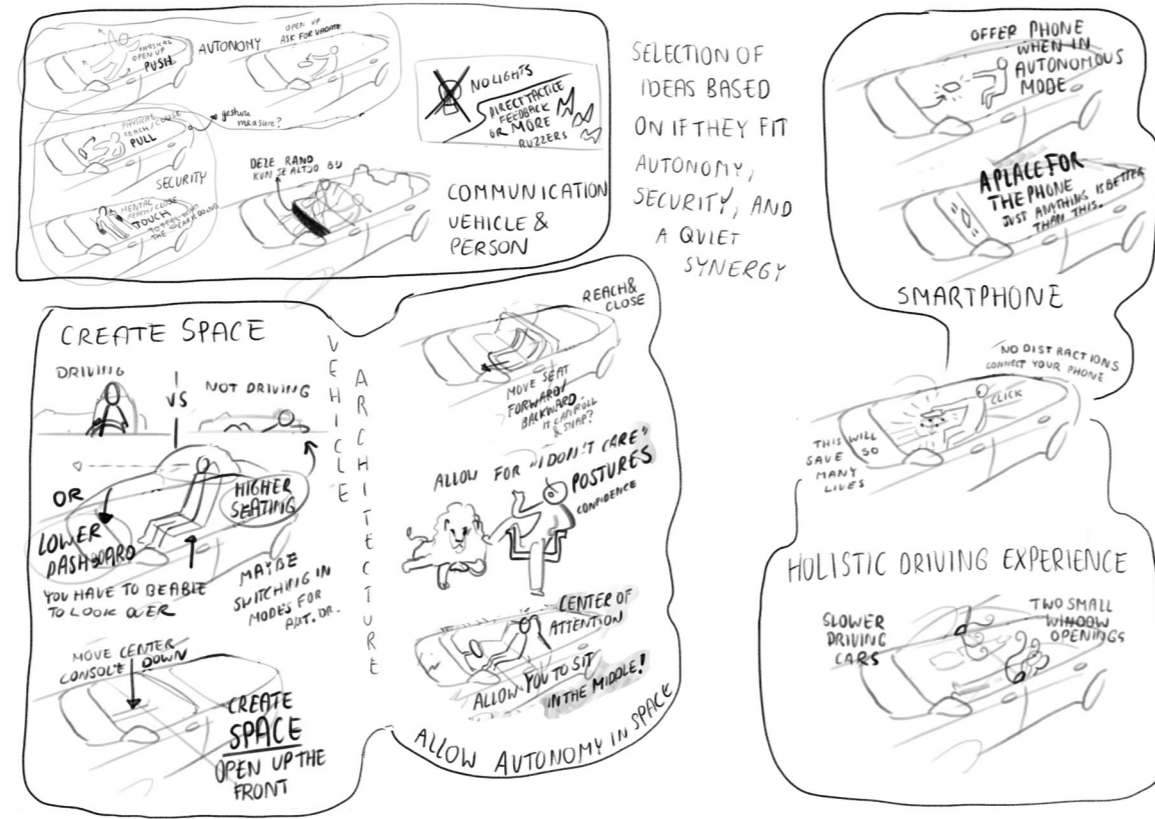 PHYSICAL
OPEN UP
PUSH
AUTONOMY
OPEN UP
ASK FOR UPDATE
PHYSICAL
REACH/CLOSE
PULL
gesture
measure?
SECURITY
MENTAL
REACH/CLOSE
TOUCH
THE CAR IS DOING
DEZE RAND
KUN JE ALTIJD
NO LIGHTS
DIRECT TACTILE
FEEDBACK
OR MORE
BUZZERS
COMMUNICATION
VEHICLE &
PERSON
SELECTION OF
IDEAS BASED
ON IF THEY FIT
AUTONOMY,
SECURITY, AND
A QUIET
SYNERGY
OFFER PHONE
WHEN IN
AUTONOMOUS
MODE
A PLACE FOR
THE PHONE
JUST ANYTHING IS BETTER
THAN THIS.
SMARTPHONE
NO DISTRACTIONS
CONNECT YOUR PHONE
CLICK
THIS WILL
SAVE SO
MANY
LIVES
HOLISTIC DRIVING EXPERIENCE
SLOWER
DRIVING
CARS
TWO SMALL
WINDOW
OPENINGS
CREATE SPACE
DRIVING
VS
NOT DRIVING
OR
LOWER
DASHBOARD
HIGHER
SEATING
YOU HAVE TO BE ABLE
TO LOOK OVER
MAYBE
SWITCHING IN
MODES FOR
AUT. DR.
MOVE CENTER
CONSOLE DOWN
CREATE
SPACE
OPEN UP THE
FRONT
VEHICLE
ARCHITECTURE
REACH &
CLOSE
MOVE SEAT
FORWARD/
BACKWARD
IT CAN ROLL
& SNAP?
ALLOW FOR "I DON'T CARE"
POSTURES
CONFIDENCE
CENTER OF
ATTENTION
ALLOW YOU TO SIT
IN THE MIDDLE!
ALLOW AUTONOMY IN SPACE